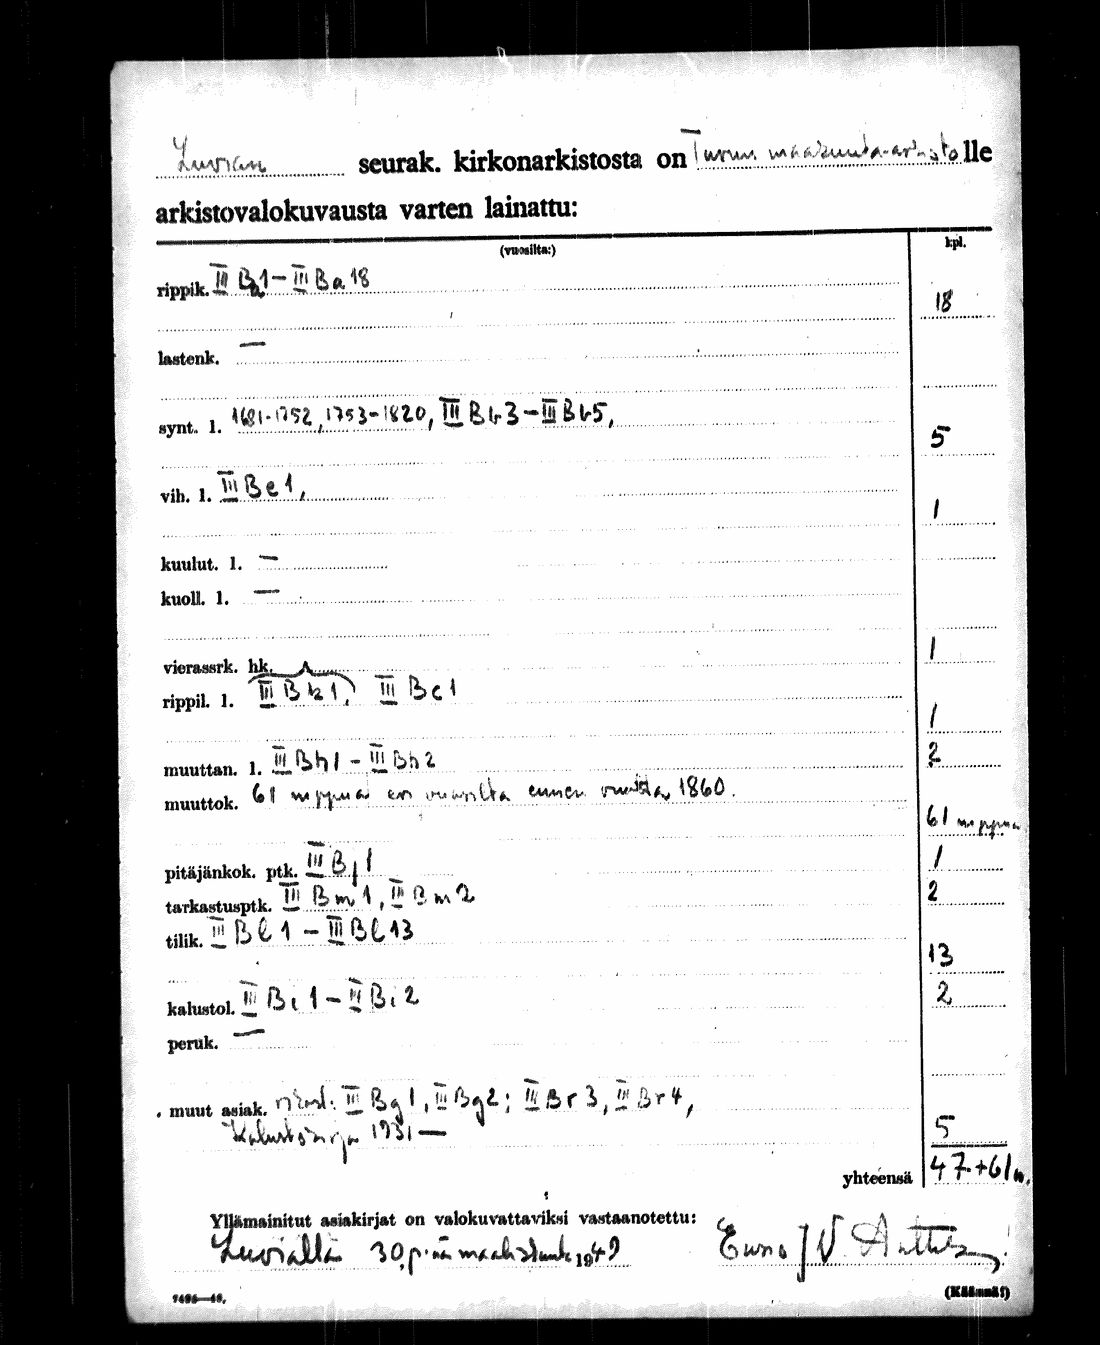 Luvian seurak. kirkonarkistosta on Turun maakunta-arkistolle
arkistovalokuvausta varten lainattu:
(vuosilta:) kpl.
rippik. III Ba1 – III Ba 18
18
lastenk. —
synt. l. 1681-1752, 1753-1820, III Bb3 – III Bb5,
5
vih. l. III Be 1,
1
kuulut. l. —
kuoll. l. —
vierassrk. hk.
1
rippil. l. III Bk 1, III Bc 1
1
muuttan. l. III Bh1 – III Bh2
2
muuttok. 61 nippua eri vuosilta ennen vuotta 1860.
61 nippua
pitäjänkok. ptk. III Bj 1
1
tarkastusptk. III Bm 1, III Bm 2
2
tilik. III Bl 1 – III Bl 13
13
kalustol. III Bi 1 – III Bi 2
2
peruk. —
muut asiak. III Bg 1, III Bg 2; III Br 3, III Br 4,
Kalustokirja 1931 —
5
yhteensä 47 + 61 n.
Yllämainitut asiakirjat on valokuvattaviksi vastaanotettu:
Luvialla 30 p:nä maaliskuuta 1949
7496—48.
(Käännä!)